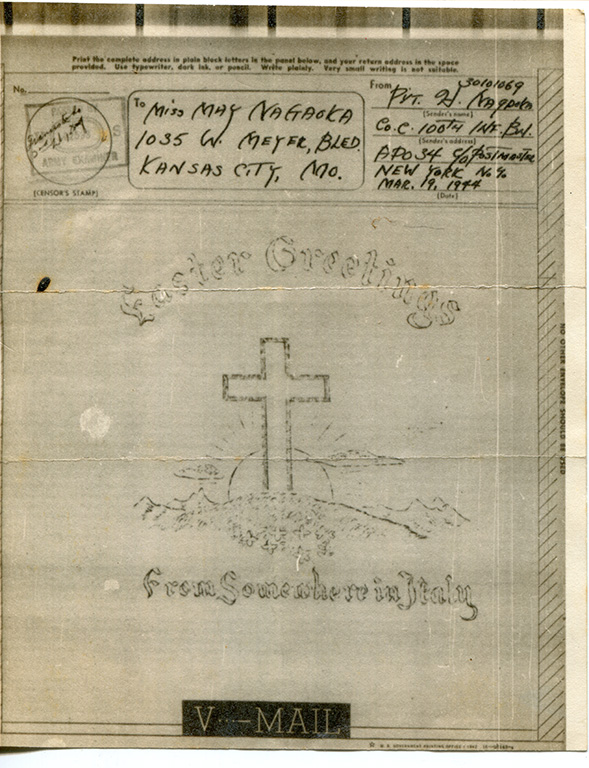 Print the complete address in plain block letters in the panel below, and your return address in the space
provided. Use typewriter, dark ink, or pencil. Write plainly. Very small writing is not suitable.
No.
ARMY EXAMINER
[CENSOR'S STAMP]
To
MISS MAY NAGAOKA
1035 W. MEYER, BLED.
KANSAS CITY, MO.
From
30101069
PVT. H. NAGAOKA
(Sender's name)
CO. C. 100TH INF. BN.
(Sender's address)
APO 34 c/o POSTMASTER
NEW YORK N.Y.
MAR. 19, 1944
(Date)
Easter Greetings
From Somewhere in Italy
V···—MAIL
NO OTHER ENVELOPE SHOULD BE USED
U. S. GOVERNMENT PRINTING OFFICE : 1942